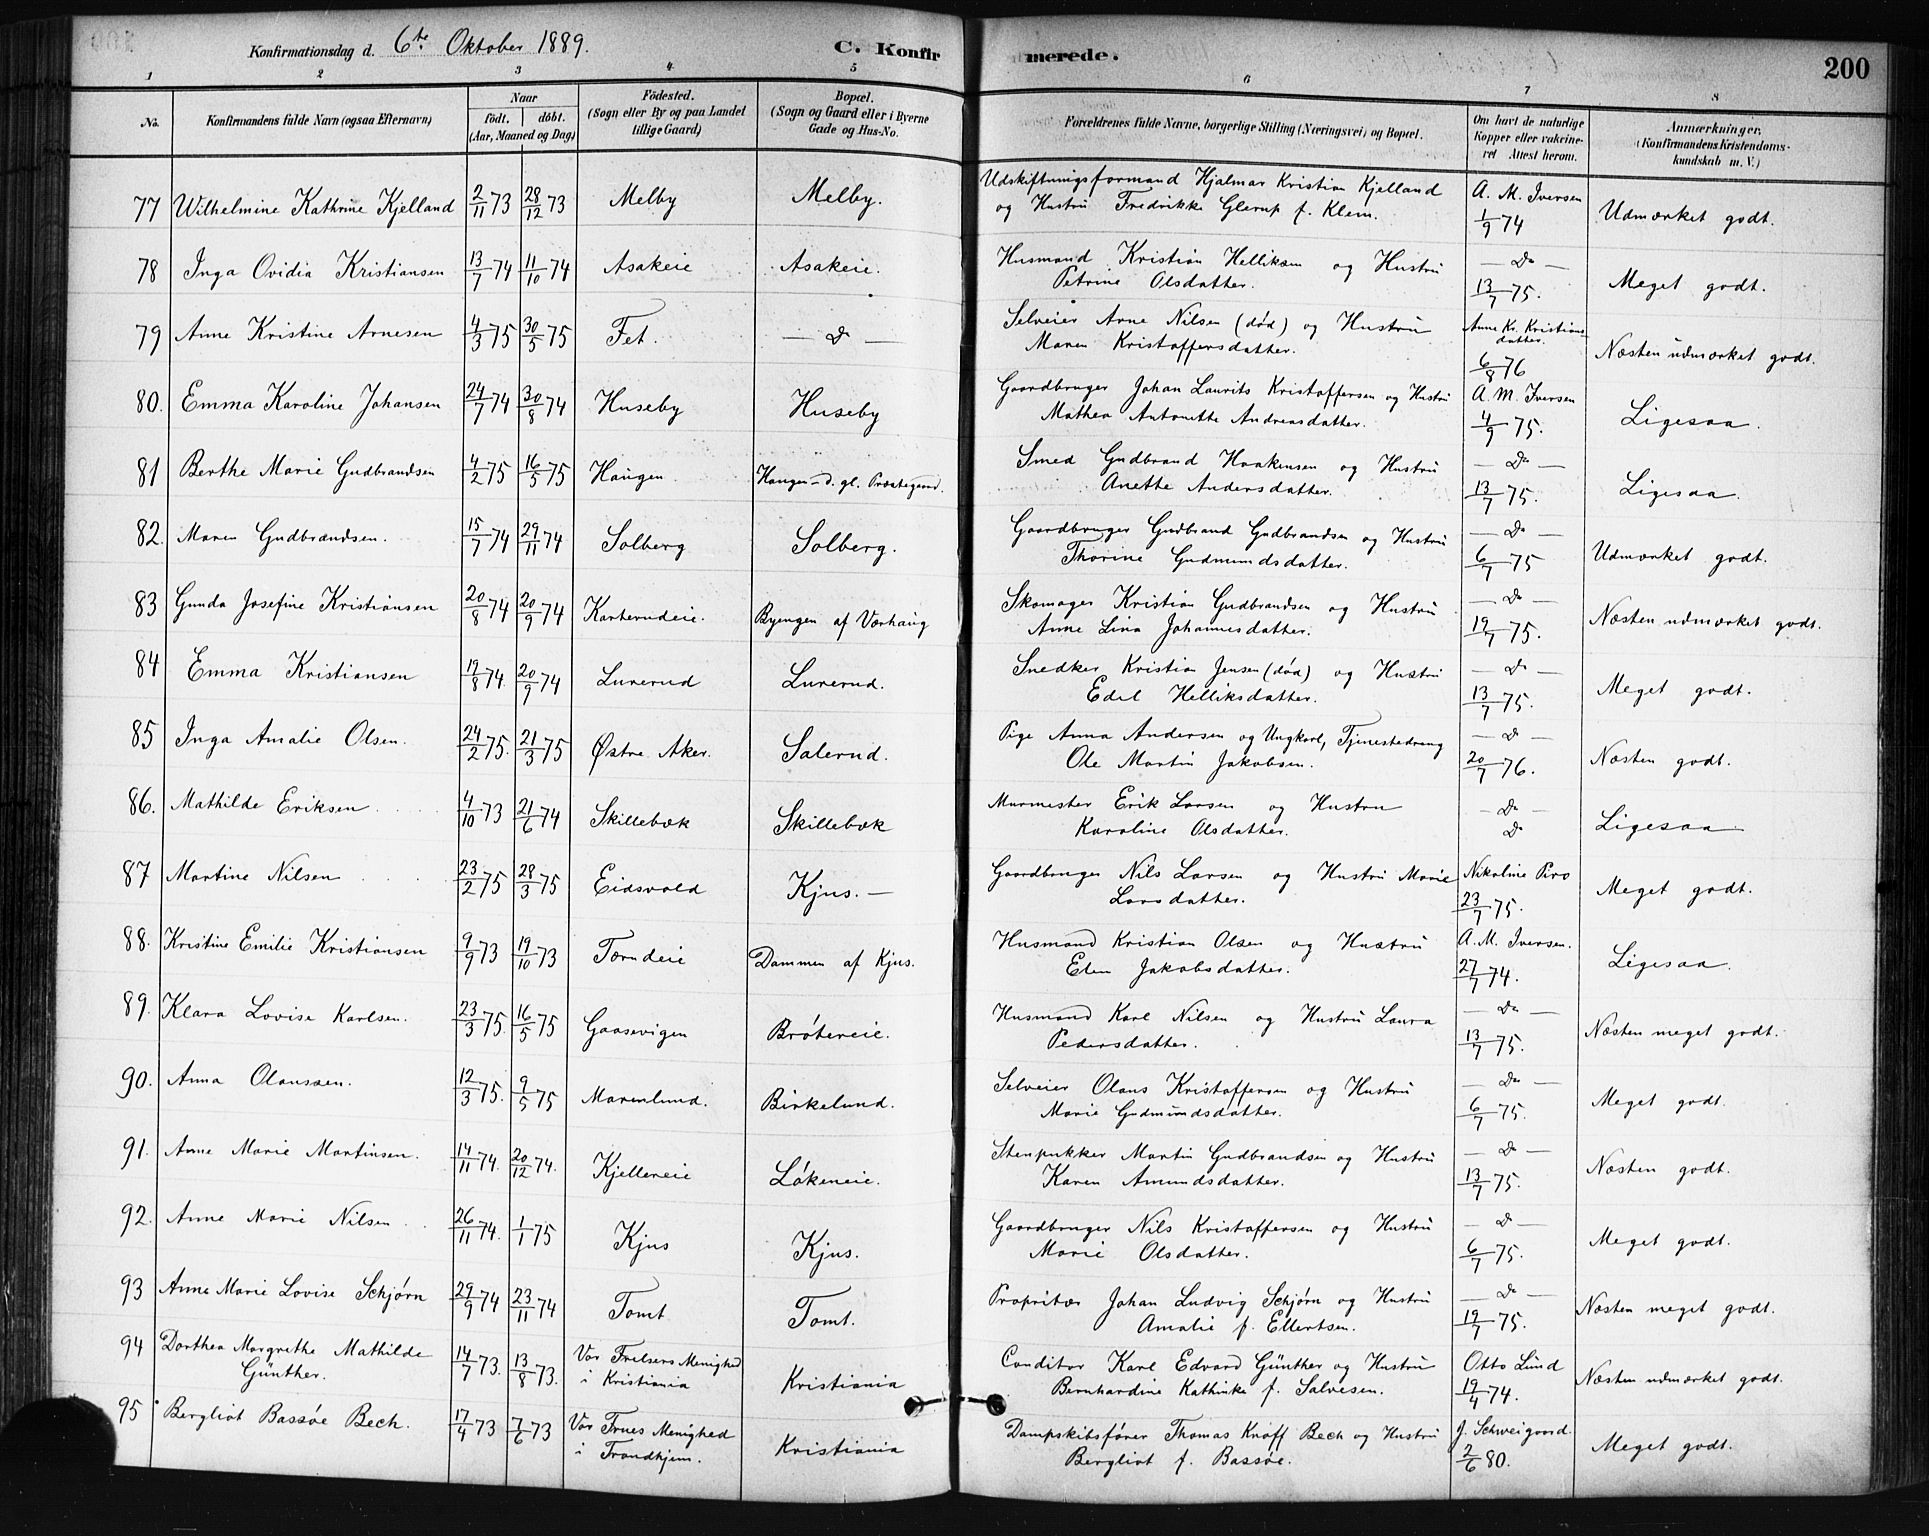 Konfirmationsdag d. 6te Oktober 1889. C. Konfirmerede. 200
1 2 3 4 5 6 7 8
No. Konfirmandens fulde Navn (ogsaa Efternavn) Naar født. døbt. (Aar, Maaned og Dag) Fødested. (Sogn eller By og paa Landet tillige Gaard) Bopæl. (Sogn og Gaard eller i Byerne Gade og Hus-No. Forældrenes fulde Navne, borgerlige Stilling (Næringsvei) og Bopæl. Om havt de naturlige Kopper eller vakcineret Attest herom. Anmærkninger. (Konfirmandens Kristendomskundskab m. V.)
77 Wilhelmine Kathrine Kjelland 2/11 73 28/12 73 Melby Melby. Udskiftningsformand Hjalmar Kristian Kjelland A. M. Iversen
og Hustru Fredrikke Glerup f. Klem. 1/9 74 Udmærket godt.
78 Inga Ovidia Kristiansen 13/7 74 11/10 74 Asakeie Asakeie. Husmand Kristian Helliksen og Hustru — Do —
Petrine Olsdatter. 13/7 75. Meget godt.
79 Anne Kristine Arnesen 4/3 75 30/5 75 Fet. — Do — Selveier Arne Nilsen (død) og Hustru Anne Kr. Kristiansdatter.
Maren Kristoffersdatter. 6/8 76 Næsten udmærket godt.
80. Emma Karoline Johansen 24/7 74 30/8 74 Huseby Huseby Gaardbruger Johan Laurits Kristoffersen og Hustru A. M. Iversen
Mathea Antonette Andreasdatter. 4/9 75. Ligesaa.
81 Berthe Marie Gudbrandsen 4/2 75 16/5 75 Haugen. Haugen d. gl. Præstegaard. Smed Gudbrand Haakensen og Hustru — Do —
Anette Andersdatter. 13/7 75. Ligesaa.
82. Maren Gudbrandsen. 15/7 74 29/11 74 Solberg Solberg. Gaardbruger Gudbrand Gudbrandsen og Hustru — Do —
Thorine Gudmundsdatter. 6/7 75 Udmærket godt.
83 Gunda Josefine Kristiansen 20/8 74 20/9 74 Karterudeie. Byengen af Værhaug Skomager Kristian Gudbrandsen og Hustru — Do —
Anne Lina Johannesdatter. 19/7 75. Næsten udmærket godt.
84 Emma Kristiansen 19/8 74. 20/9 74 Lurerud Lurerud. Snedker Kristian Jensen (død) og Hustru — Do —
Edel Helliksdatter. 13/7 75. Meget godt.
85 Inga Amalie Olsen. 24/2 75. 21/3 75 Østre Aker. Salerud. Pige Anna Andersen og Ungkarl, Tjenestedreng — Do —
Ole Martin Jakobsen. 20/7 76. Næsten godt.
86. Mathilde Eriksen 4/10 73 21/6 74 Skillebæk Skillebæk Murmester Erik Larsen og Hustru — Do —
Karoline Olsdatter. Do Ligesaa
87 Martine Nilsen 23/2 75 28/3 75 Eidsvold Kjus. — Gaardbruger Nils Larsen og Hustru Marie Nikoline Piro
Larsdatter. 23/7 75. Meget godt.
88. Kristine Emilie Kristiansen 9/9 73 19/10 73 Torndeie Dammen af Kjus. Husmand Kristian Olsen og Hustru A. M. Iversen.
Elen Jakobsdatter. 27/7 74. Ligesaa.
89. Klara Lovise Karlsen. 23/3 75. 16/5 75 Gaasevigen Brøtereie. Husmand Karl Nilsen og Hustru Laura — Do —
Pedersdatter. 13/7 75. Næsten meget godt.
90. Anna Olaussen. 12/3 75. 9/5 75 Marenlund. Birkelund. Selveier Olaus Kristoffersen og Hustru — Do —
Marie Gudmundsdatter. 6/7 75. Meget godt.
91. Anne Marie Martinsen. 14/11 74. 20/12 74. Kjellereie Løkeneie. Stenpukker Martin Gudbrandsen og Hustru — Do —
Karen Amundsdatter. 13/7 75. Næsten godt.
92. Anne Marie Nilsen 26/11 74. 1/1 75 Kjus Kjus. Gaardbruger Nils Kristoffersen og Hustru — Do —
Marie Olsdatter. 6/7 75. Meget godt.
93 Anne Marie Lovise Schjørn 29/9 74 23/11 74 Tomt Tomt. Propritær Johan Ludvig Schjørn og Hustru — Do —
Amalie f. Ellertsen. 19/7 75. Næsten meget godt.
94 Dorthea Margrethe Mathilde Günther. 14/7 73. 13/8 73. Vor Frelsers Menighed i Kristiania Kristiania Conditor Karl Edvard Günther og Hustru Otto Lund
Bernhardine Kathinke f. Salvesen. 19/4 74. Næsten udmærket godt.
95 Bergliot Bassøe Bech. 17/4 73 7/6 73 Vor Frues Menighed i Trondhjem. Kristiania Dampskibsfører Thomas Kroff Bech og Hustru J. Schweigaard.
Bergliot f. Bassøe. 2/6 80. Meget godt.